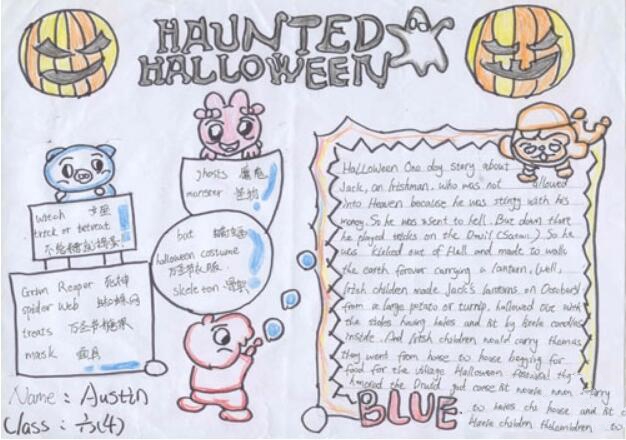 HAUNTED
HALLOWEEN
witch 女巫
trick or tetreat
不给糖就捣蛋.
Grim Reaper 死神
spider web 蜘蛛网
treats 万圣节糖果
mask 面具
ghosts 魔鬼
monster 怪物
bat 蝙蝠
halloween costume
万圣节衣服
skeleton
Name : Austin
Class : 六(4)
Halloween One day story about
Jack, an Irishman, who was not allowed
into Heaven because he was stingy with his
money. So he was sent to hell. But down there
he played tricks on the Devil (Satan). So he
was kicked out of Hell and made to walk
the earth forever carrying a lantern.
Irish children made Jack's lanterns on October
from a large potato or turnip, hallowed out with
the sides having holes and lit by candles
inside. And Irish children would carry them as
they went from house to house begging for
food for the village Halloween festival
honored the Druid god
BLUE